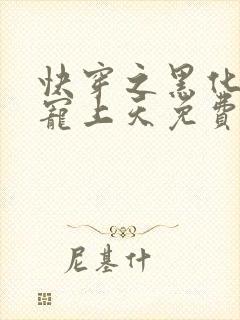 快穿之黑化
寵上天免費
尼基什